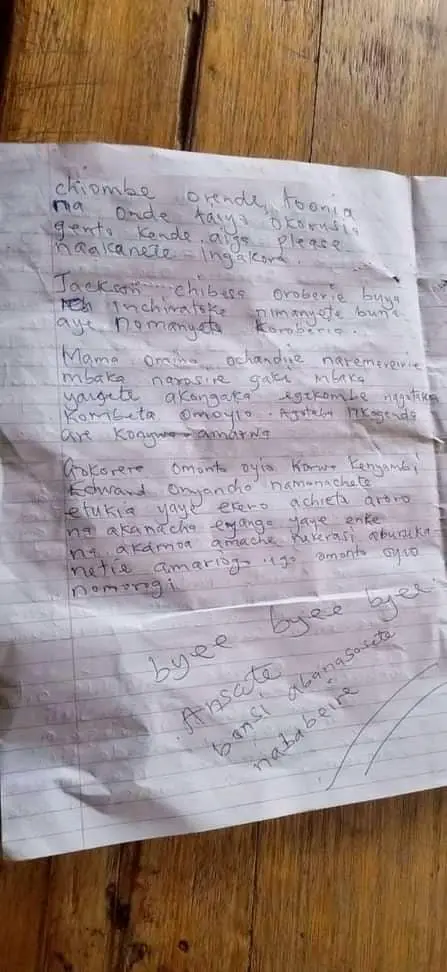 chiombe orende, toonia
na onde taiyo okorusia
gento kende aigo please
naakanete ingakora.
Jackson chibesa oroberie buya
inchiratoke nimanyete bune
aye nomanyete koroberia.
Mama omino ochandire naremereirie
mbaka narosire gaki mbaka
yangete akongaka egekombe nagotaka
kombeta omoyio. Agoteba nkogenda
are konywa amarwa
Gokorere omonto oyio korwa Kenyambi
Edward omyancho namonachete
etukia yaye ekero achieta aroro
na akanacha egango yaye enke
na akamoa amache rukerasi aburuka
netie amariogo igo omonto oyio
nomorogi
byee byee byee.
Ansate
bansi abanasosete
natabeire